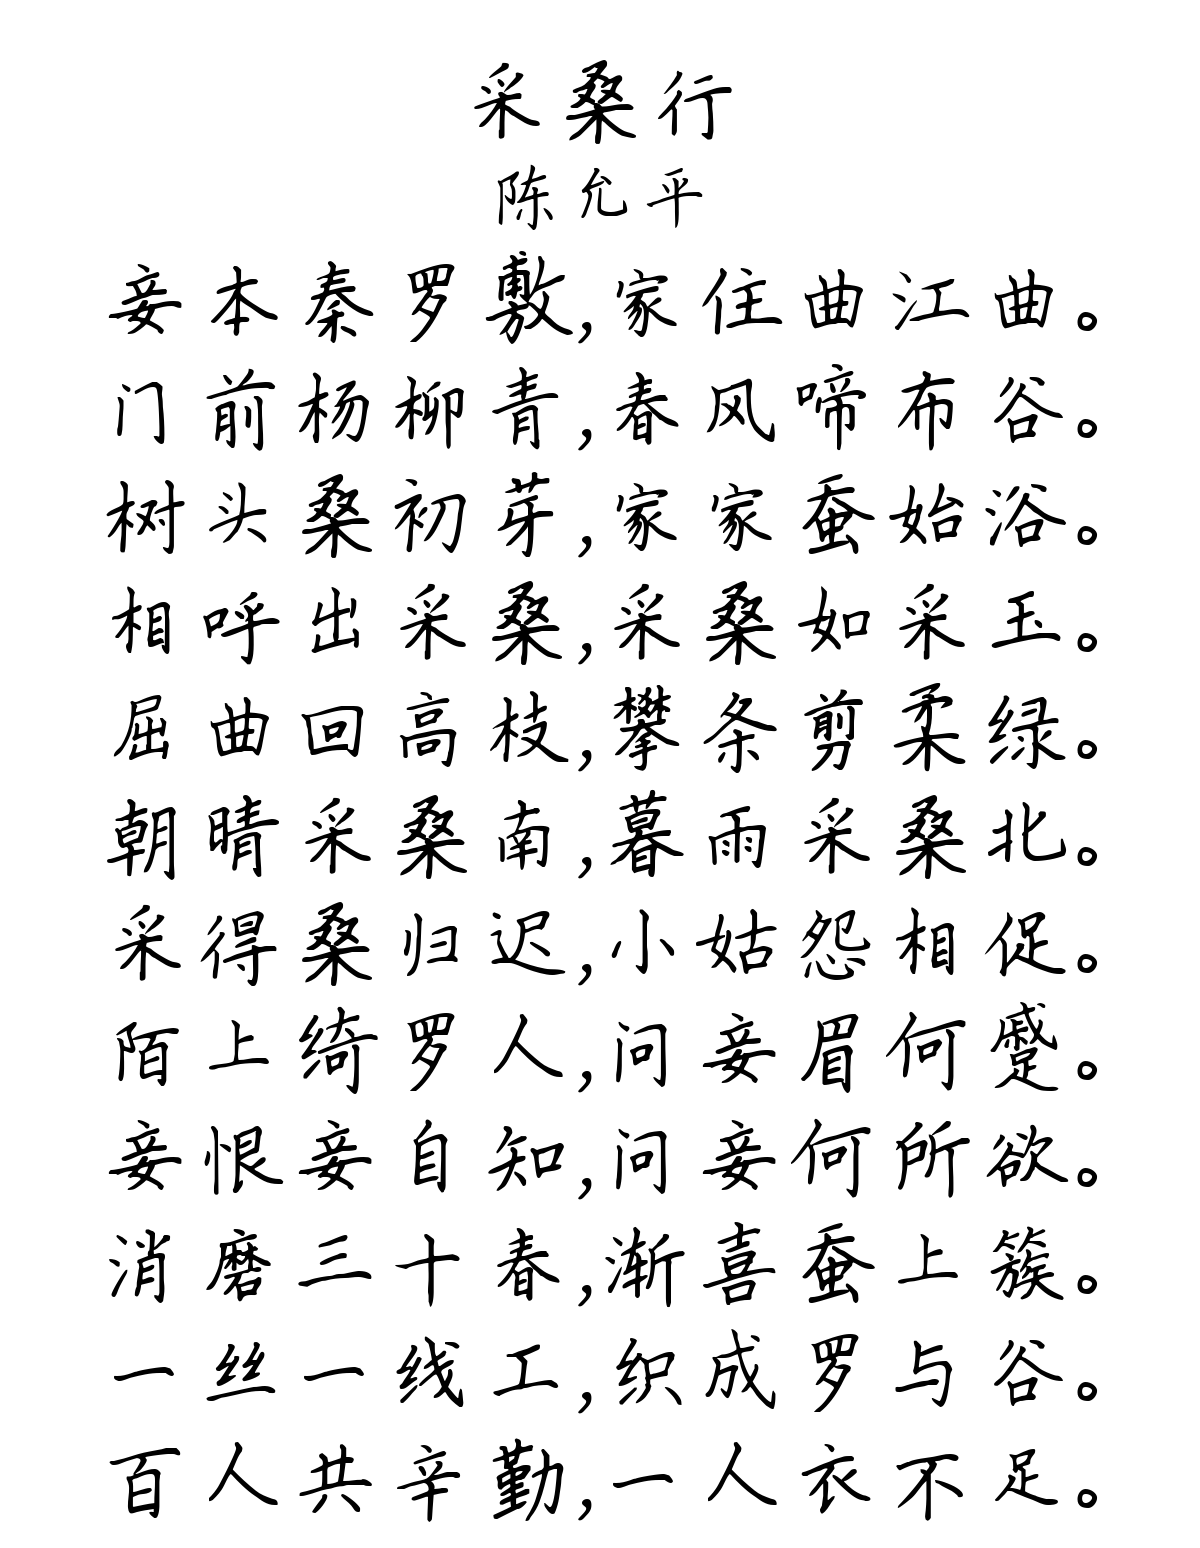 采桑行
陈允平
妾本秦罗敷,家住曲江曲。
门前杨柳青,春风啼布谷。
树头桑初芽,家家蚕始浴。
相呼出采桑,采桑如采玉。
屈曲回高枝,攀条剪柔绿。
朝晴采桑南,暮雨采桑北。
采得桑归迟,小姑怨相促。
陌上绮罗人,问妾眉何蹙。
妾恨妾自知,问妾何所欲。
消磨三十春,渐喜蚕上簇。
一丝一线工,织成罗与谷。
百人共辛勤,一人衣不足。